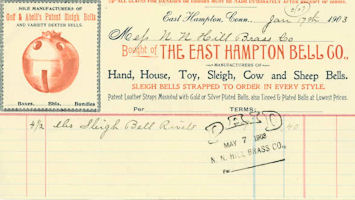 SOLE MANUFACTURERS OF
Gof & Abell's Patent Sleigh Bells
AND VARIETY DEXTER BELLS
Boxes. Bbls. Bundles
East Hampton, Conn., Jan 17th 1903
Mess N. N. Hill Brass Co
Bought of THE EAST HAMPTON BELL CO.,
MANUFACTURERS OF
Hand, House, Toy, Sleigh, Cow and Sheep Bells.
SLEIGH BELLS STRAPPED TO ORDER IN EVERY STYLE.
Patent Leather Straps Mounted with Gold or Silver Plated Bells, also Tinned & Plated Bells at Lowest Prices.
Per TERMS:
4/2 lbs Sleigh Bell Rivets 40
PAID
MAY 7 1903
N. N. HILL BRASS CO.